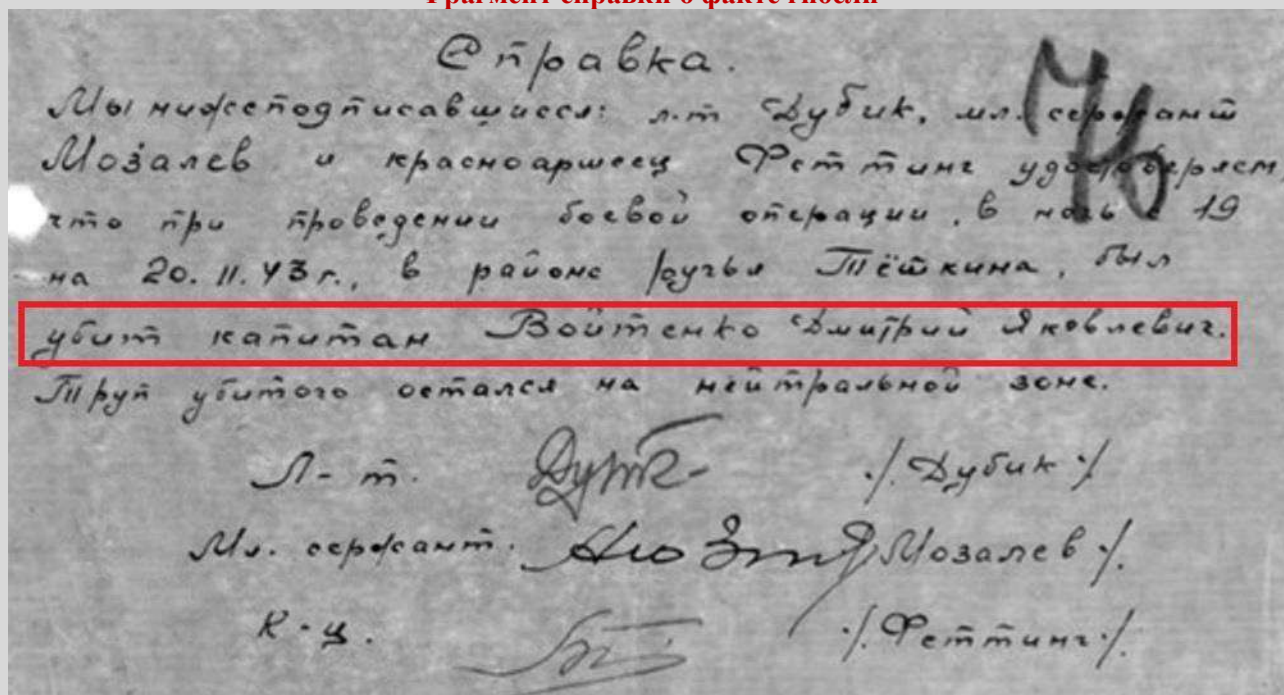 Фрагмент справки о факте гибели
Справка.
76
Мы нижеподписавшиеся: л-т Дубик, мл. сержант
Мозалев и красноармеец Феттинг удостоверяем,
что при проведении боевой операции, в ночь с 19
на 20.11.43 г., в районе ручья Тёткина, был
убит капитан Войтенко Дмитрий Яковлевич.
Труп убитого остался на нейтральной зоне.
Л-т. ./Дубик./
Мл. сержант. /Мозалев./.
К-ц. ./Феттинг./.